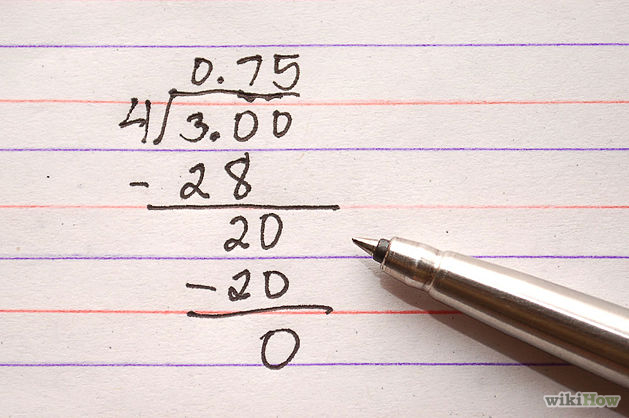 0.75
4)3.00
- 28
20
-20
0
wikiHow